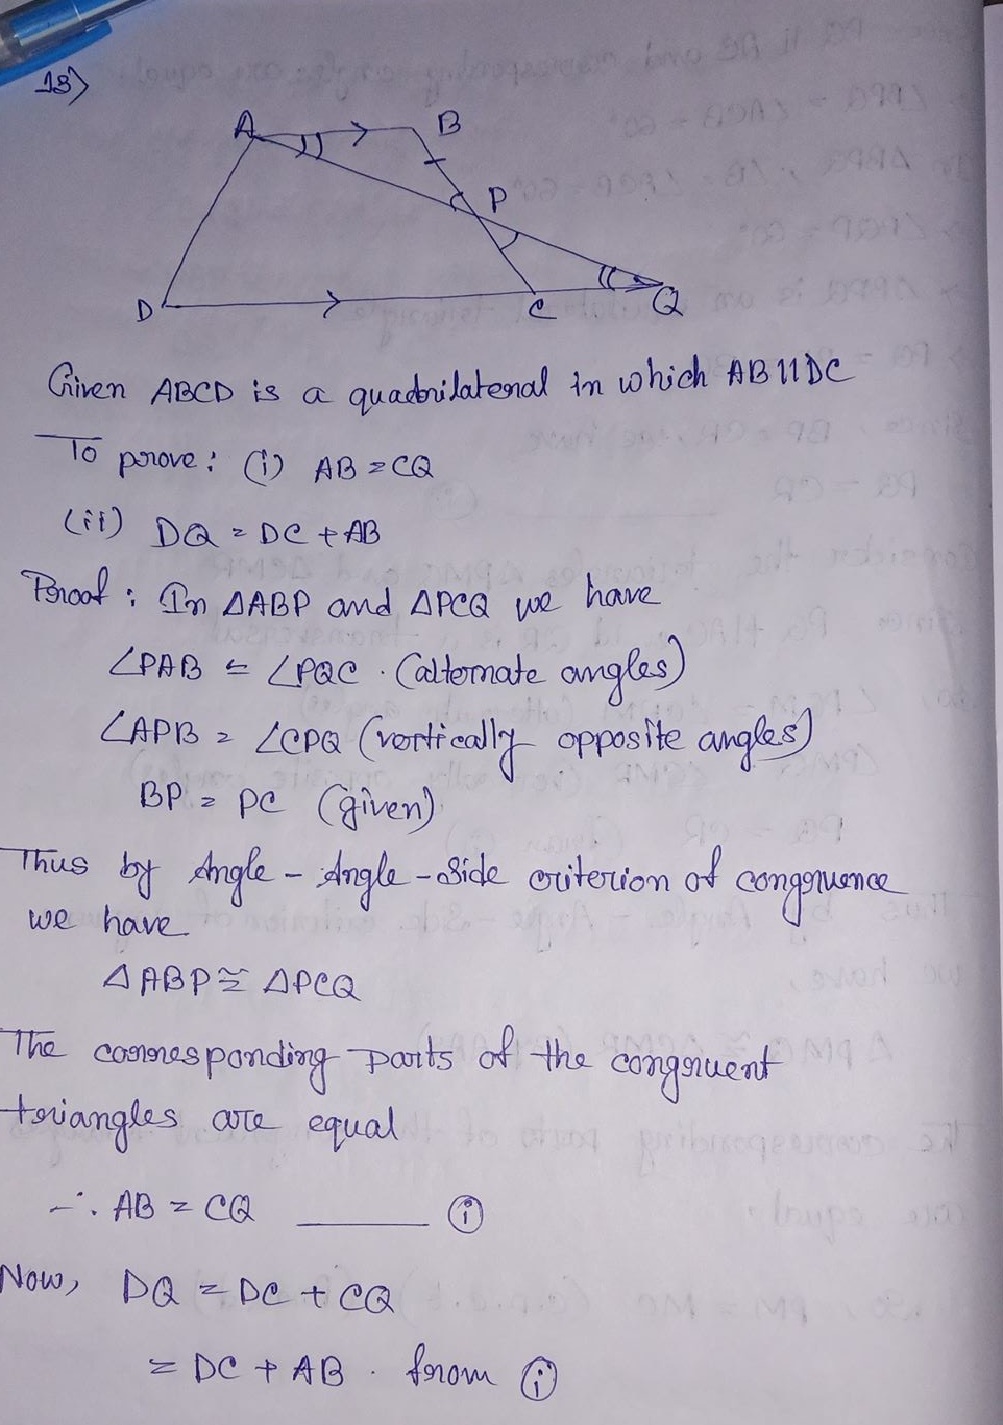 13)
A B
P
D C Q
Given ABCD is a quadrilateral in which AB || DC
To prove: (i) AB = CQ
(ii) DQ = DC + AB
Proof: In △ABP and △PCQ we have
∠PAB = ∠PQC. (alternate angles)
∠APB = ∠CPQ (vertically opposite angles)
BP = PC (given)
Thus by Angle-Angle-Side criterion of congruence
we have
△ABP ≅ △PCQ
The corresponding parts of the congruent
triangles are equal
∴ AB = CQ ______ (i)
Now, DQ = DC + CQ
= DC + AB. from (i)